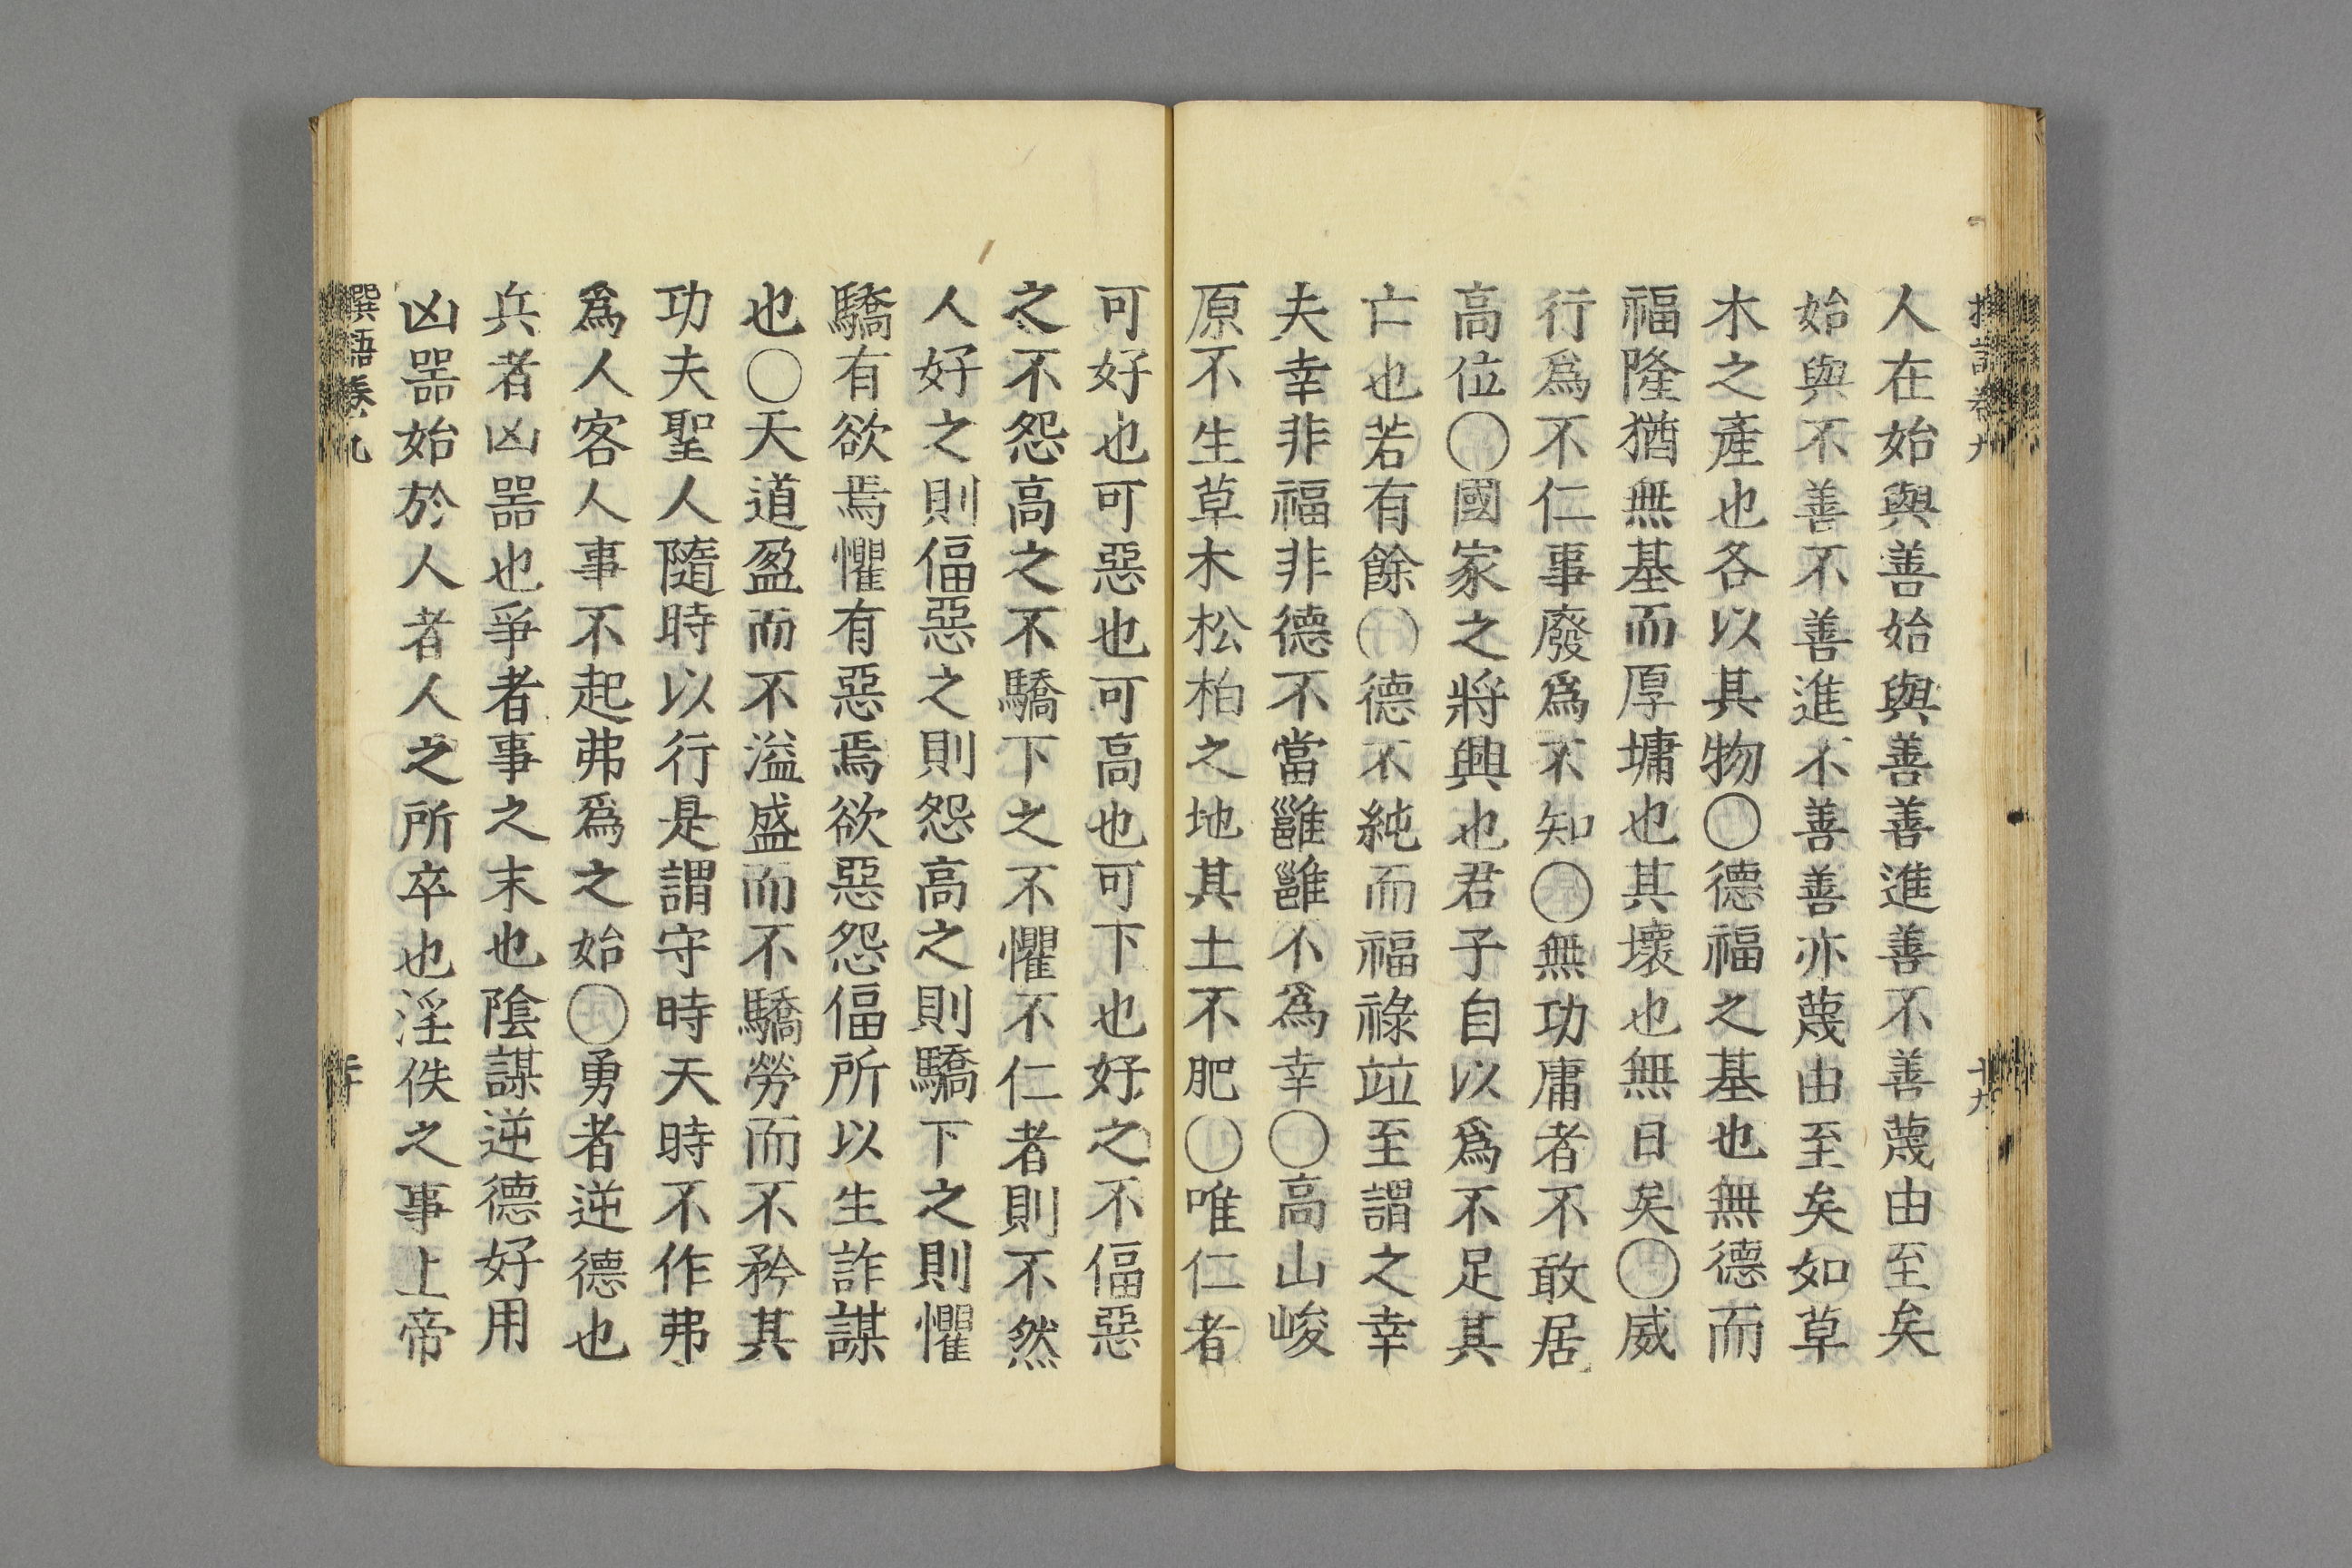 撰語卷九 十九
人在始與善始與善善進善不善蔑由至矣
始與不善不善進不善善亦蔑由至矣如草
木之產也各以其物〇德福之基也無德而
福隆猶無基而厚墉也其壞也無日矣〇威
行爲不仁事廢爲不知〇無功庸者不敢居
高位〇國家之將興也君子自以爲不足其
亡也若有餘〇德不純而福祿竝至謂之幸
夫幸非福非德不當雝雝不爲幸〇高山峻
原不生草木松柏之地其土不肥〇唯仁者
可好也可惡也可高也可下也好之不偪惡
之不怨高之不驕下之不懼不仁者則不然
人好之則偪惡之則怨高之則驕下之則懼
驕有欲焉懼有惡焉欲惡怨偪所以生詐謀
也〇天道盈而不溢盛而不驕勞而不矜其
功夫聖人隨時以行是謂守時天時不作弗
爲人客人事不起弗爲之始〇勇者逆德也
兵者凶噐也爭者事之末也陰謀逆德好用
凶噐始於人者人之所卒也淫佚之事上帝
撰語卷九 二十